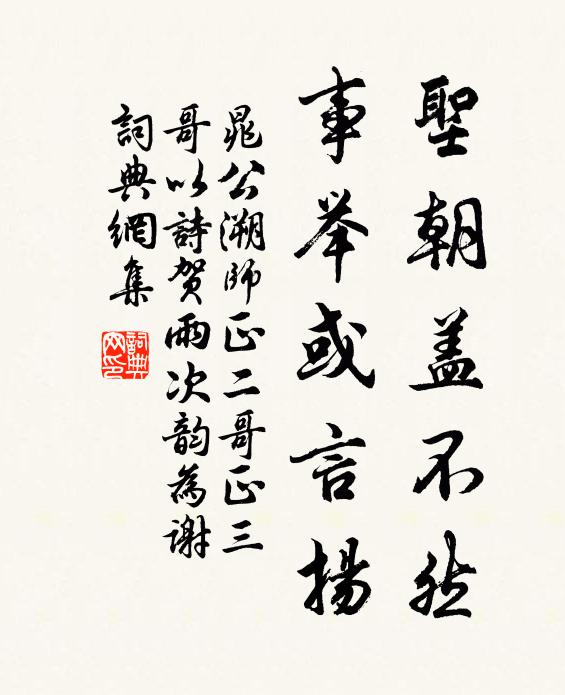 聖朝盖不然
事举或言揚
晁公溯師正二哥正三
哥以詩贺雨次韵為谢
詞典網集
詞典
网印